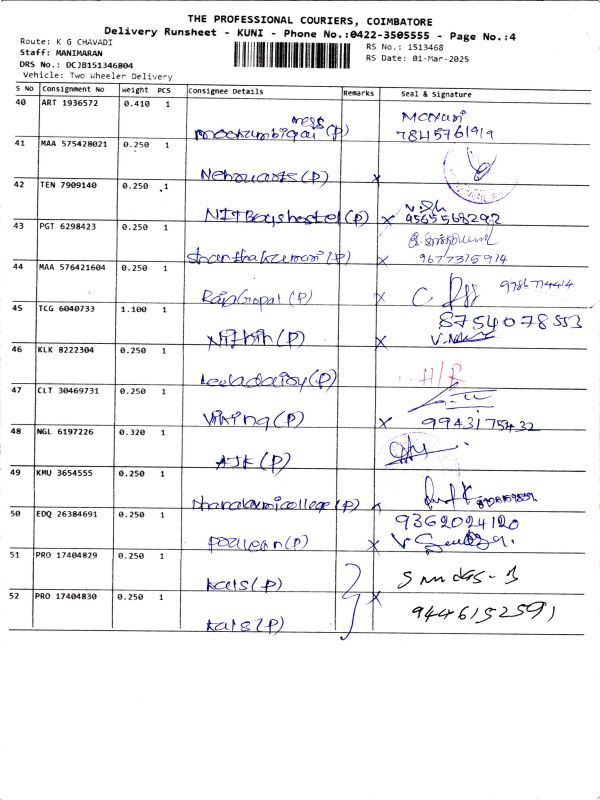 THE PROFESSIONAL COURIERS, COIMBATORE
Delivery Runsheet - KUNI - Phone No.:0422-3505555 - Page No.:4
Route: K G CHAVADI
RS No.: 1513468
Staff: MANIMARAN
RS Date: 01-Mar-2025
DRS No.: DCJB151346804
Vehicle: Two Wheeler Delivery
S No Consignment No Weight PCS Consignee Details Remarks Seal & Signature
40 ART 1936572 0.410 1
mess
mookambigai (P) 7845761919
41 MAA 575428021 0.250 1
Nehruarts (P) x
42 TEN 7909140 0.250 1
NIT Boys hostel (P) x 9565568292
43 PGT 6298423 0.250 1
Shanthakumari (P) x 9677315914
44 MAA 576421604 0.250 1
RajaGopal (P) x 9786774414
45 TCG 6040733 1.100 1
8754078553
Nithin (P) x
46 KLK 8222304 0.250 1
Leeladaisy (P) H/R
47 CLT 30469731 0.250 1
Viking (P) x 9943175432
48 NGL 6197226 0.320 1
AJK (P)
49 KMU 3654555 0.250 1
Dhanalaxmi college (P)
50 EDQ 26384691 0.250 1
9362024120
(P) x
51 PRO 17404829 0.250 1
Kals (P)
52 PRO 17404830 0.250 1
x 9446152591
Kals (P)